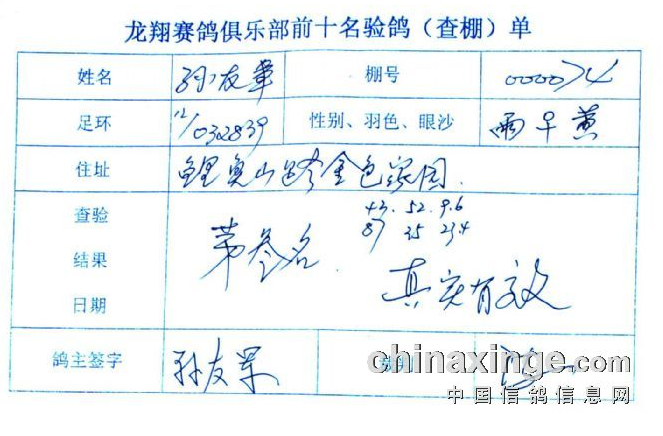 龙翔赛鸽俱乐部前十名验鸽（查棚）单
姓名 孙友军 棚号 0000074
足环 12/032839 性别、羽色、眼沙 雨 黄
住址 鲤鱼山路金色家园
查验 43. 52. 9.6
87 35 234
结果 第叁名
日期 真实有效
鸽主签字 孙友军
chinaxinge.com
中国信鸽信息网